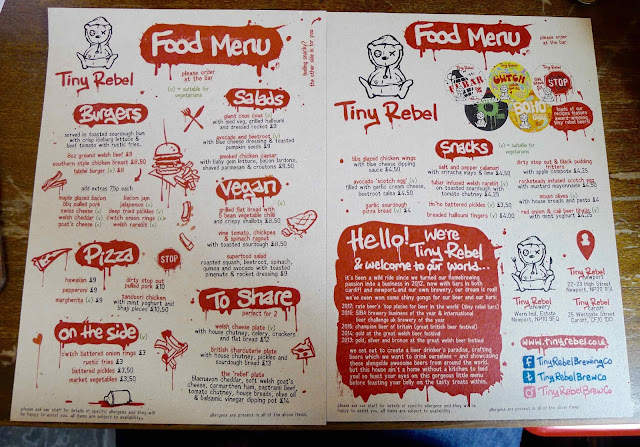 Food Menu
Tiny Rebel
please order
at the bar
(v) = suitable for
vegetarians
feeling snacky?
the other side is for you
Burgers
served in toasted sourdough bun
with crisp iceberg lettuce &
beef tomato with rustic fries.
8oz ground welsh beef £9
southern style chicken breast £8.50
falafel burger (v) £8
add extras 75p each
maple glazed bacon
bbq pulled pork
swiss cheese (v)
welsh cheddar (v)
goat's cheese (v)
bacon jam
jalapenos (v)
deep fried pickles (v)
cwtch onion rings (v)
welsh rarebit (v)
Pizza
STOP
hawaiian £9
pepperoni £9
margherita (v) £9
dirty stop out
pulled pork £10
tandoori chicken
with mint yoghurt and
bhaji pieces £10.50
on the side
cwtch battered onion rings £3
rustic fries £3
battered pickles £3.50
market vegetables £3.50
Salads
giant cous cous (v)
with med veg, grilled halloumi
and dressed rocket £9
avocado and beetroot (v)
with blue cheese dressing & toasted
pumpkin seeds £9
smoked chicken caesar
with baby gem lettuce, bacon lardons,
shaved parmesan & croutons £9.50
Vegan
grilled flat bread with
5 bean vegetable chilli
and crispy shallots £8.50
vine tomato, chickpea
& spinach ragout
with toasted sourdough £8.50
superfood salad
roasted squash, beetroot, spinach,
quinoa and avocado with toasted
pinenuts & rocket dressing £9
To Share
perfect for 2
welsh cheese plate (v)
with house chutney, celery, crackers
and flat bread £12
british charcuterie plate
with house chutney, pickles and
sourdough bread £13
the 'rebel' plate
blaenavon cheddar, soft welsh goat's
cheese, carmarthen ham, pastrami beef,
tomato chutney, house breads, olive oil
& balsamic vinegar dipping pot £14
please ask our staff for details of specific allergens and they will
be happy to assist you. all items are subject to availability.
allergens are present in all of the above items.
Food Menu
Tiny Rebel
please order
at the bar
CWTCH
STOP
loads of our
recipes feature
award-winning
tiny rebel beers!
Snacks
(v) = suitable for
vegetarians
bbq glazed chicken wings
with blue cheese dipping
sauce £4.50
avocado 'scotch egg' (v)
filled with garlic cream cheese,
beetroot salsa £4.50
garlic sourdough
pizza bread (v) £4
salt and pepper calamari
with sriracha mayo & lime £4.50
tuber infused welsh rarebit (v)
on toasted sourdough with
tomato chutney £4.50
bo'ho battered pickles (v) £3.50
breaded halloumi fingers (v) £4.00
dirty stop out & black pudding
fritters
with apple compote £4.25
rocksteady infused scotch egg
with mustard mayonnaise £4.50
mixed olives (v)
with house breads and pesto £4
red onion & cali beer bhajis (v)
with mint yoghurt £4.25
Hello! We're
Tiny Rebel
& welcome to our world...
it's been a wild ride since we turned our homebrewing
passion into a business in 2012. now with bars in both
cardiff and newport, and our own brewery, our dream is real!
we've even won some shiny gongs for our beer and our bars:
2017: rate beer's 'top places for beer in the world' (tiny rebel bars)
2016: SIBA brewery business of the year & international
beer challenge uk brewery of the year
2015: champion beer of britain (great british beer festival)
2014: gold at the great welsh beer festival
2013: gold, silver and bronze at the great welsh beer festival
we set out to create a beer drinker's paradise, crafting
beers which we want to drink ourselves - and showcasing
these alongside awesome beers from around the world.
but this house ain't a home without a kitchen to feed
you! so feast your eyes on this gorgeous little menu
before feasting your belly on the tasty treats within.
Tiny Rebel
Newport
22-23 High Street
Newport, NP20 1FX
Tiny Rebel
Brewery
Wern Ind. Estate
Newport, NP10 9FQ
Tiny Rebel
Cardiff
25 Westgate Street
Cardiff, CF10 1DD
www.tinyrebel.co.uk
TinyRebelBrewingCo
TinyRebelBrewCo
TinyRebelBrewCo
please ask our staff for details of specific allergens and they will
be happy to assist you. all items are subject to availability.
allergens are present in all of the above items.